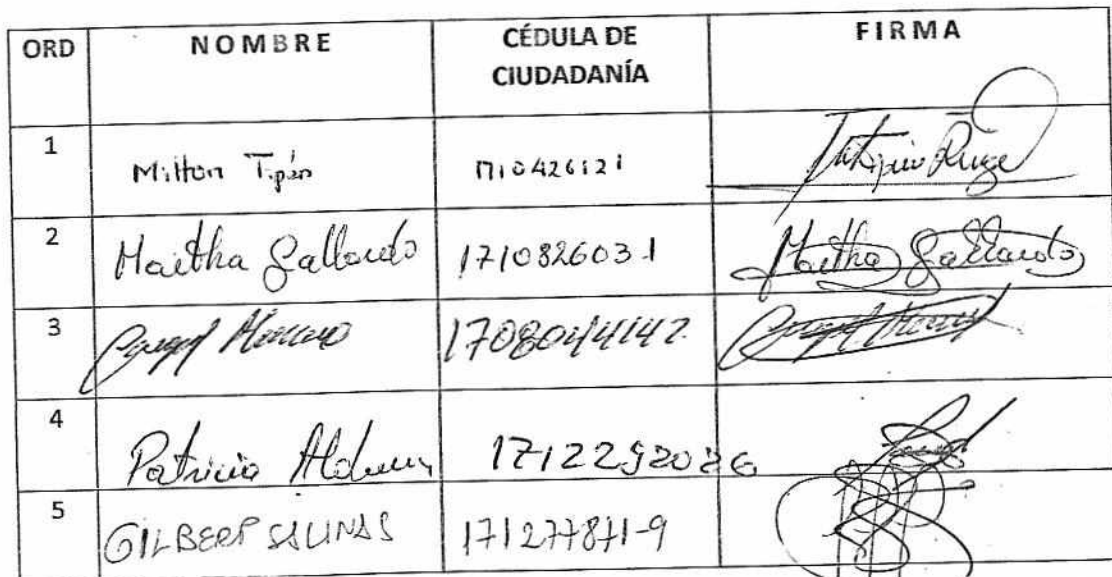 ORD NOMBRE CÉDULA DE CIUDADANÍA FIRMA
1 Milton Tipán 1710426121
2 Martha Gallardo 171082603-1 Martha Gallardo
3 1708044142
4 Patricia 1712292026
5 GILBERT SALINAS 171277871-9